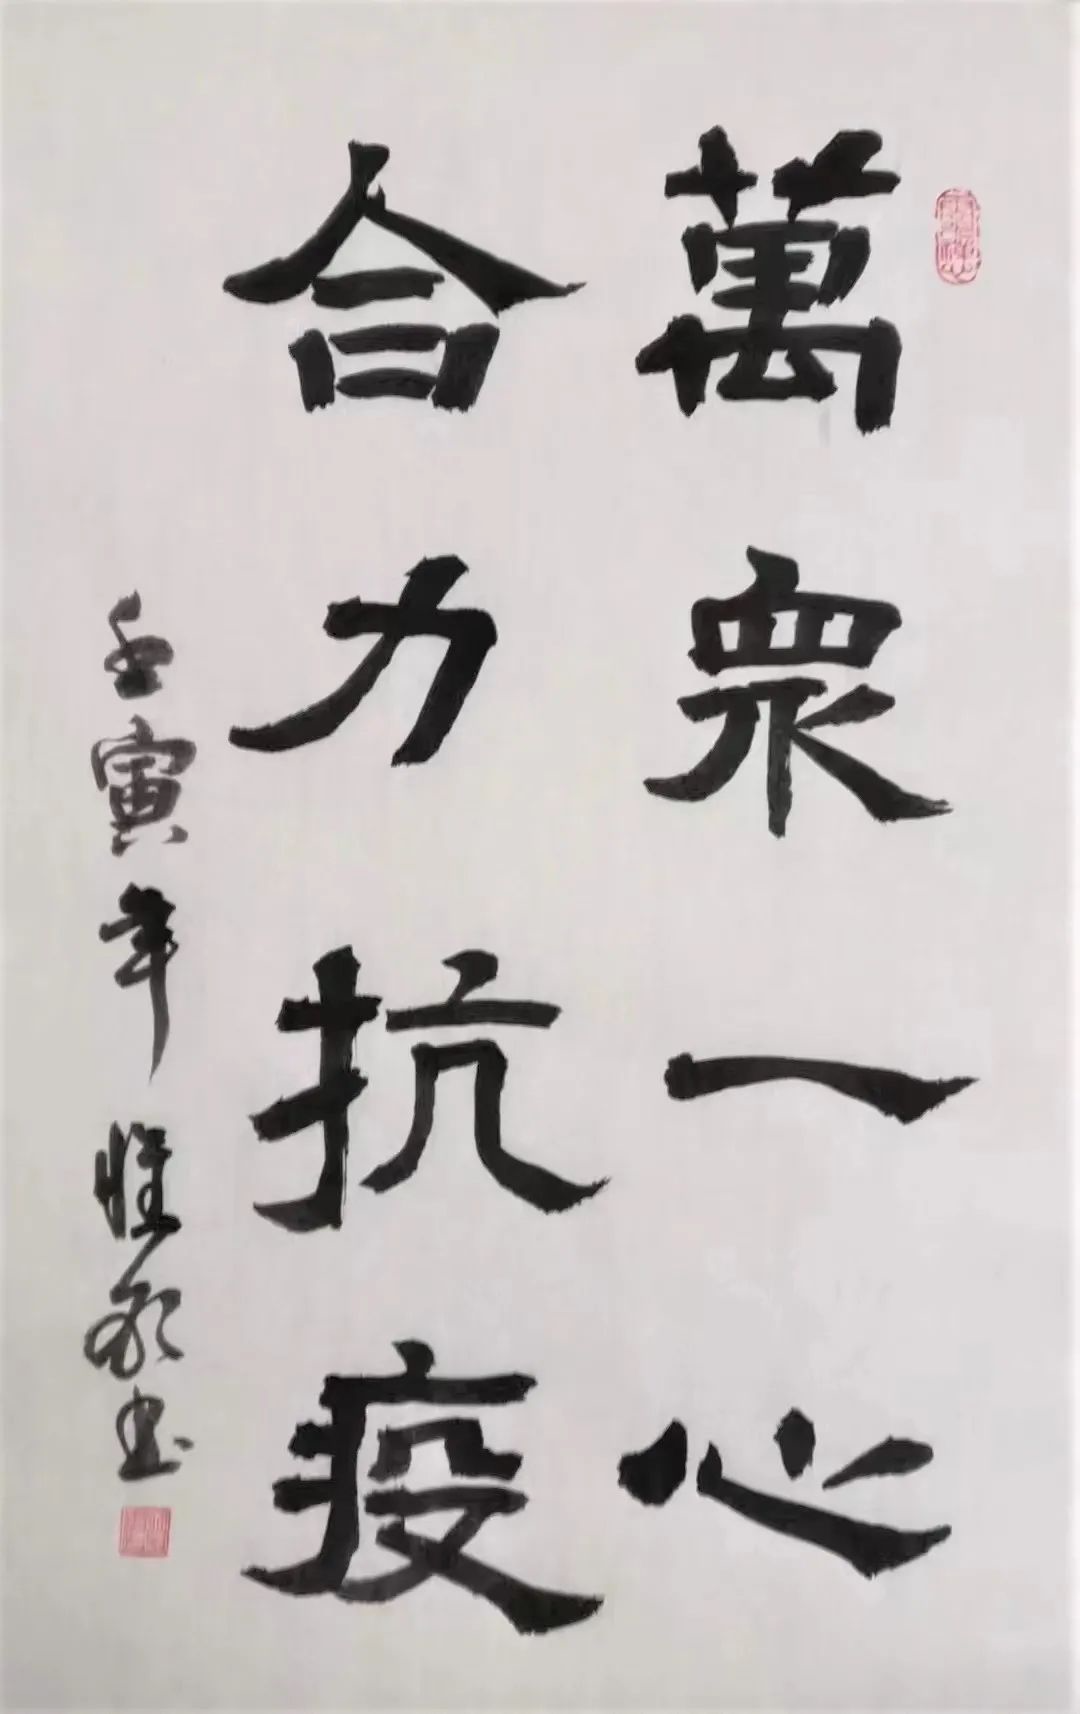 萬眾一心
合力抗疫
壬寅年惟敬書